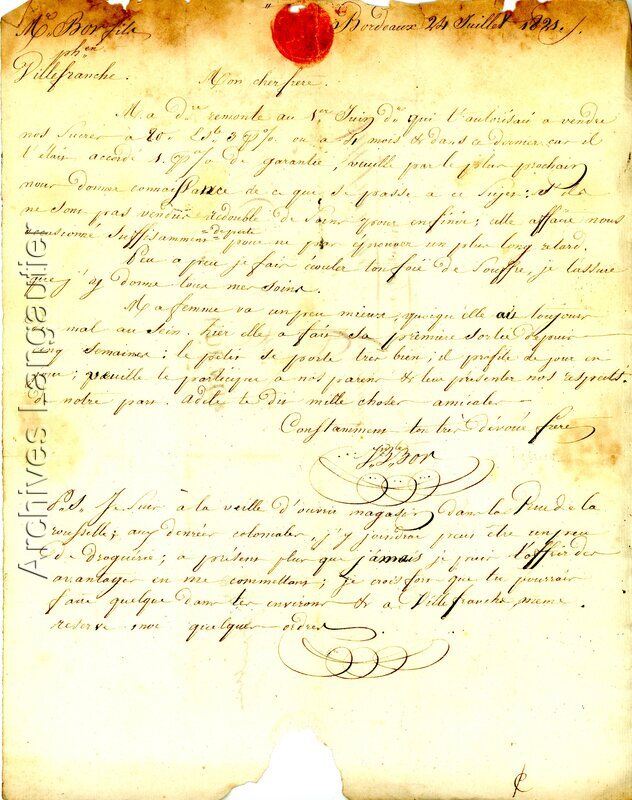 Mr Bor fils Bordeaux 24 Juillet 1821.
phen
Villefranche.
Mon cher frere.
Ma dre remonte au 1er Juin dr qui t'autorisait a vendre
nos Sucres a 20s L.st 3 p% ou a 4 mois & dans ce dernier cas il
t'était accordé 1. p% de garantie, veuille par le plus prochain
nous donner connaissance de ce qui se passe a ce Sujet: et s'ils
ne sont pas vendus redouble de Soins pour en finir; cette affaire nous
Suffisamment de perte pour ne pas éprouver un plus long retard.
Peu a peu je fais écouler ton foie de Souffre, je t'assure
que j'y donne tous mes soins.
Ma femme va un peu mieux, quoiqu'elle ait toujours
mal au Sein. hier elle a fait sa première sortie depuis
cinq Semaines: le petit se porte très bien; il profite de jour en
jour; veuille le participer a nos parens & leur présenter nos respects
de notre part. Adèle te dit mille choses amicales
Constamment ton très dévoué frere
Bor
P.S. Je Suis à la veille d'ouvrir magasin dans la Rue de la
rousselle; aux denrées coloniales, j'y joindrai peut être un peu
de droguerie; a présent plus que jamais je puis t'offrir des
avantages en me commettant; je crois fort que tu pourrais
faire quelque dans tes environs & a Villefranche meme.
reserve moi quelques ordres
Archives Langautier